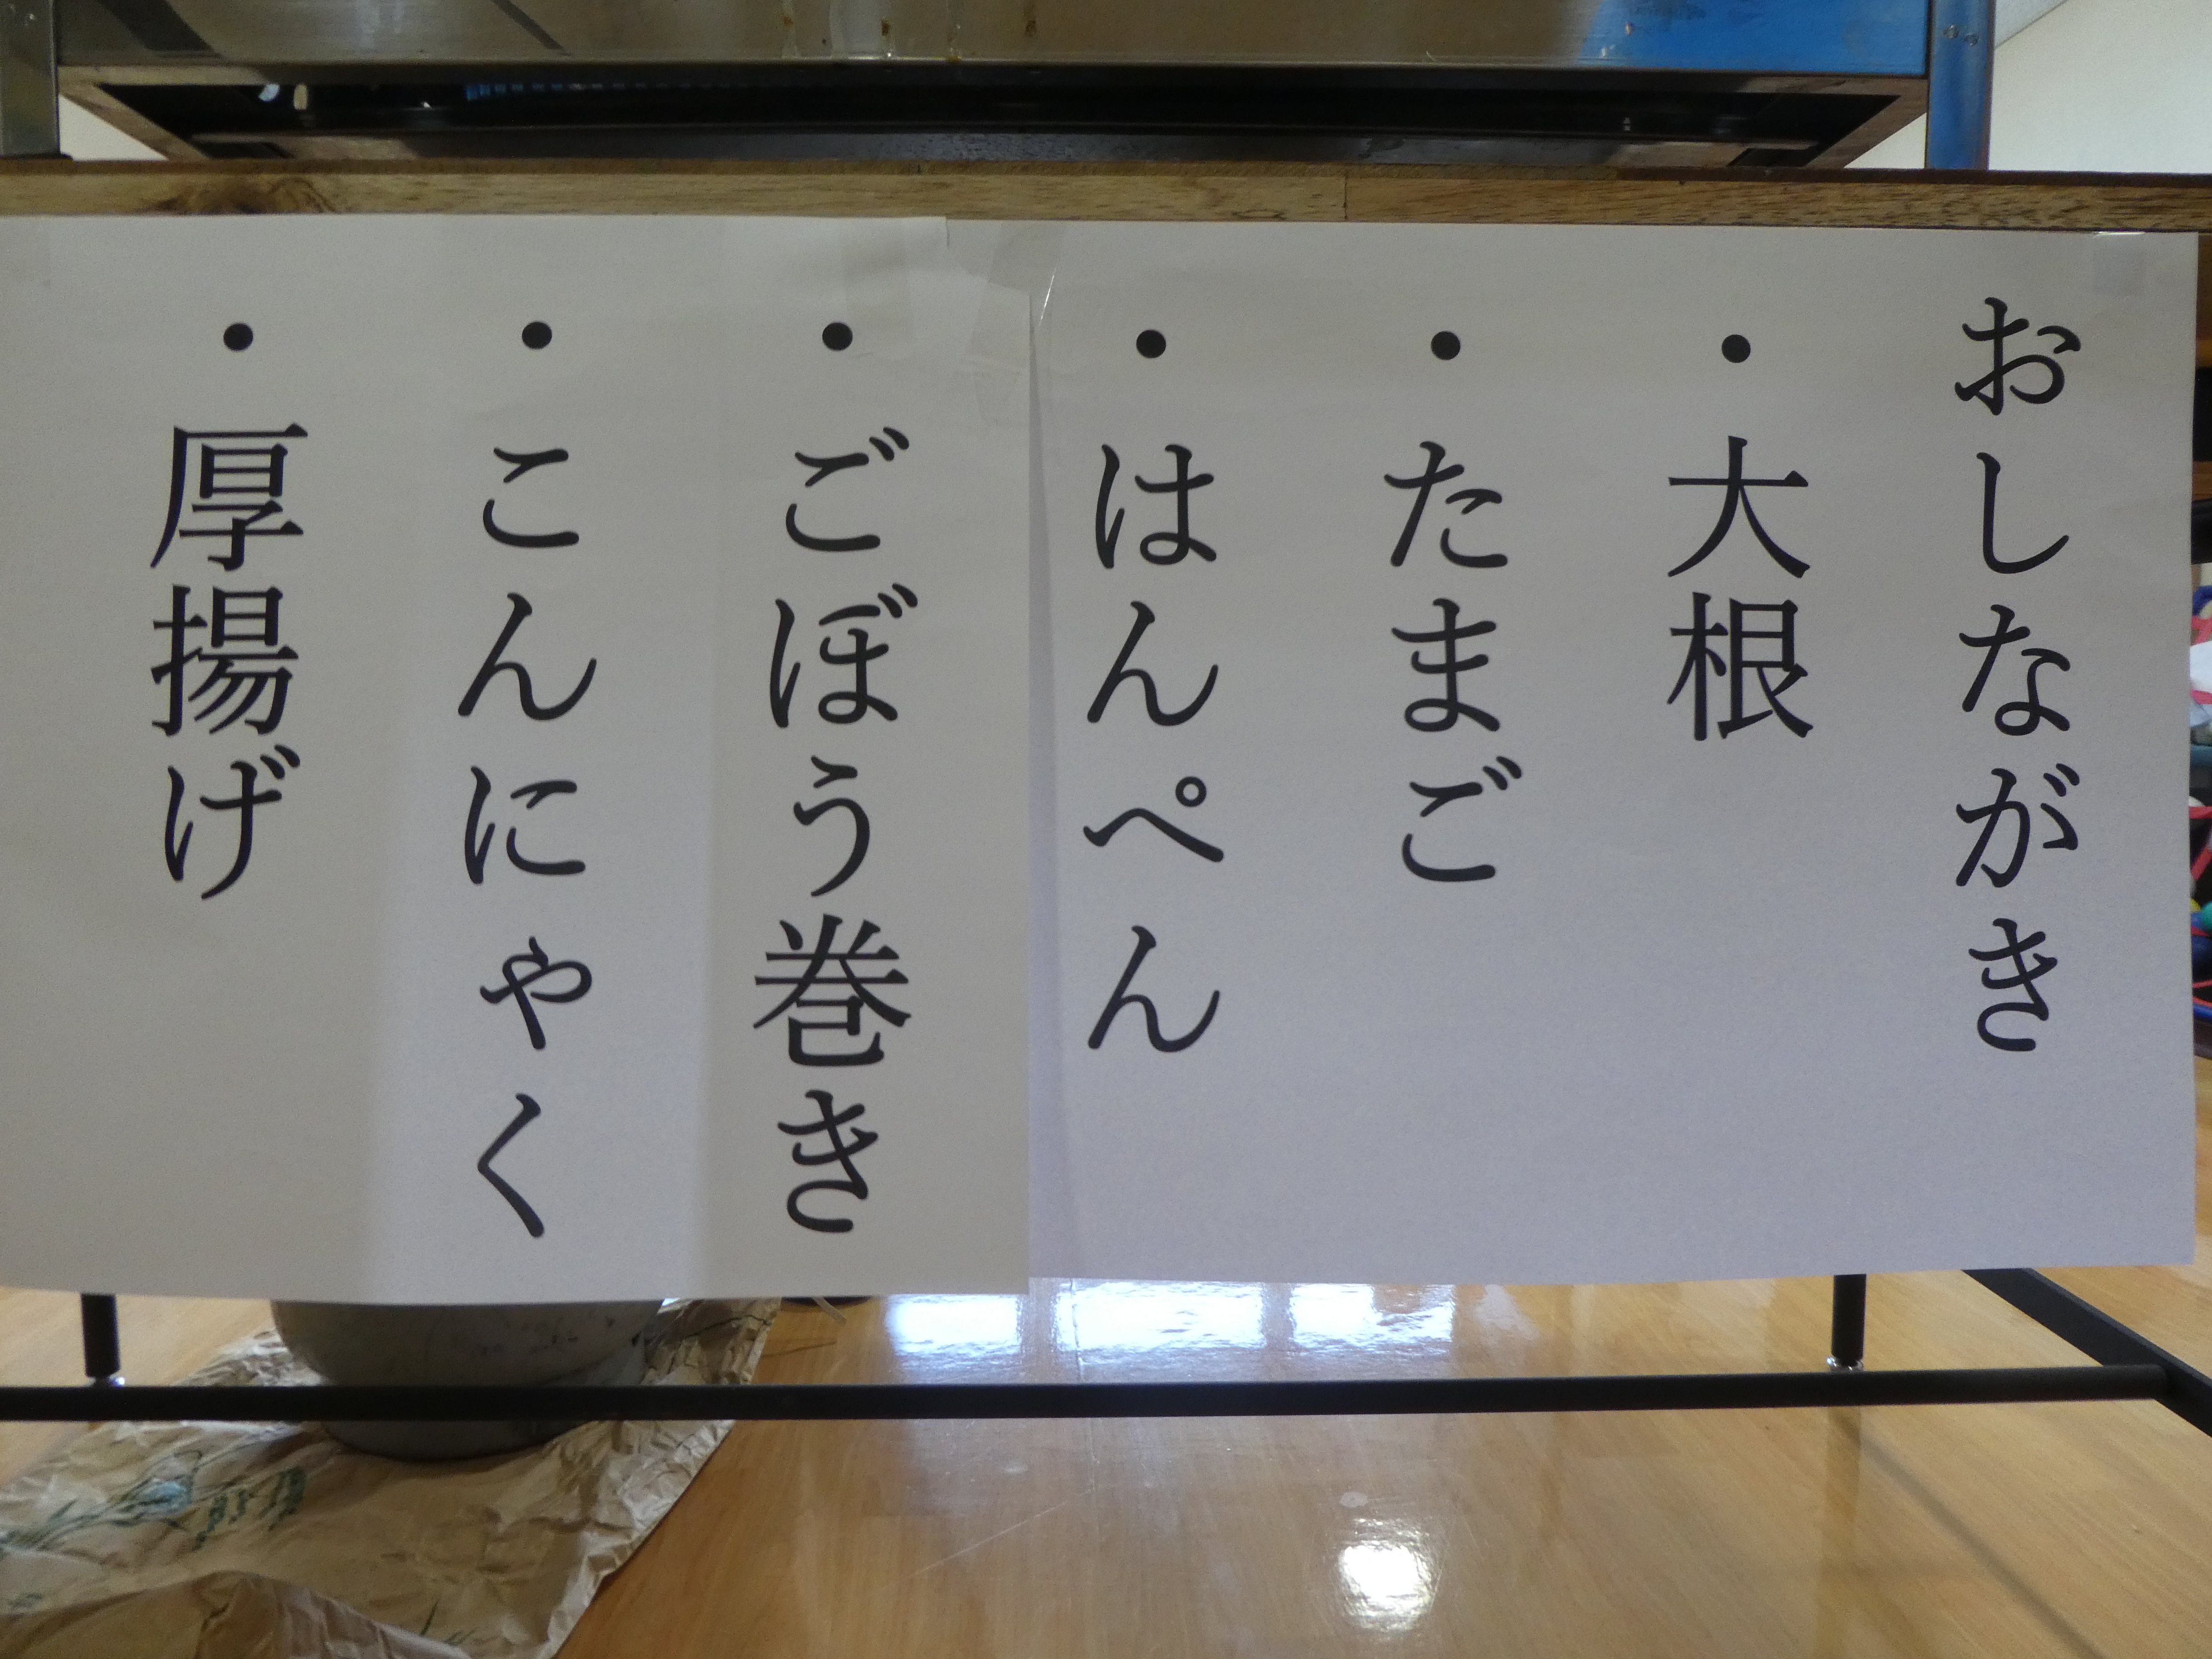 おしながき
・大根
・たまご
・はんぺん
・ごぼう巻き
・こんにゃく
・厚揚げ